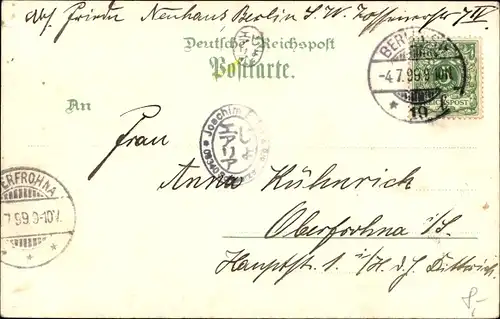 Abs. Frieda Neuhaus Berlin S. W. Zossenerstr 7 III
Deutsche Reichspost
Postkarte.
BERLIN S.W.
-4.7.99.9-10N.
* 19
REICHSPOST
An
Joachim
Frau
Anna Kühnrich
OBERFROHNA
7.99.9-10V.
Oberfrohna i/S.
Hauptstr. 1 i/H. d. H.
8,-